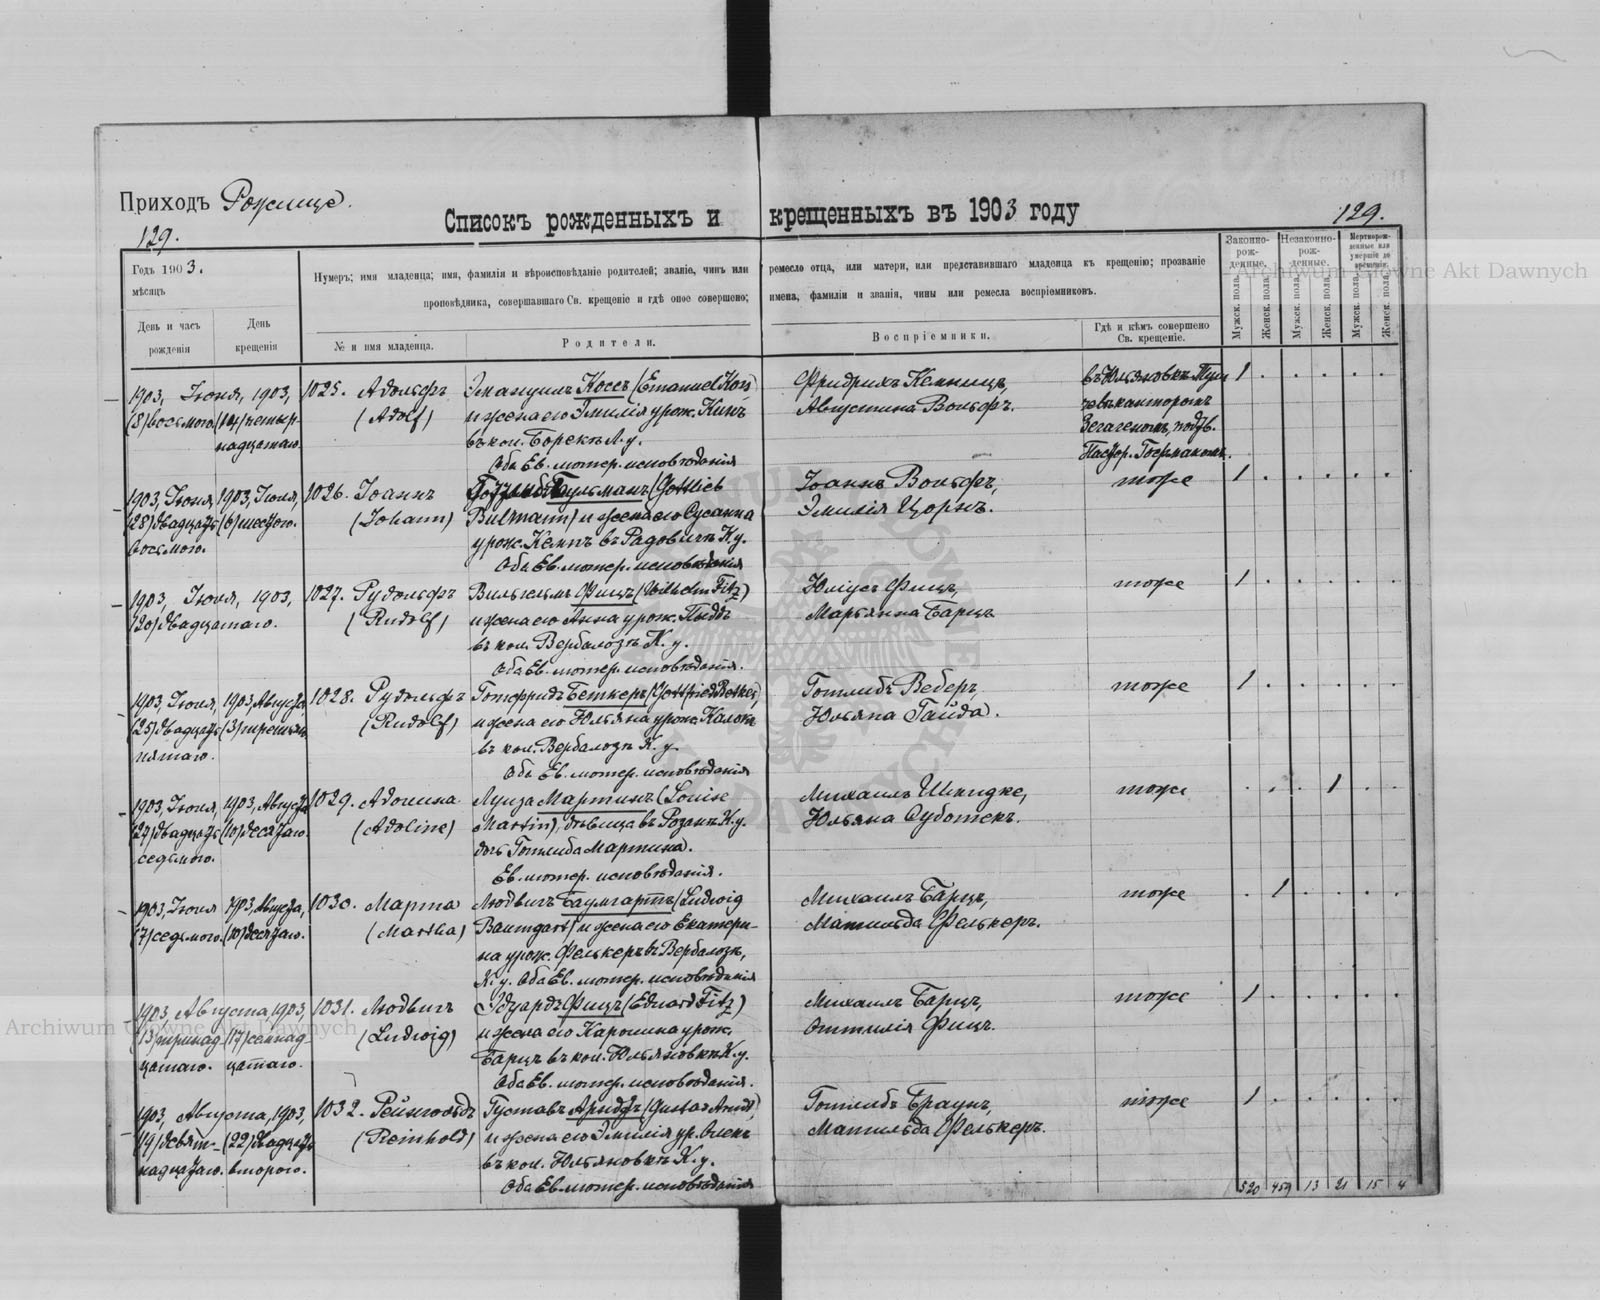 Приходъ Рожище.
Списокъ рожденныхъ и крещенныхъ въ 1903 году
129.
129.
Годъ 1903.
мѣсяцъ
День и часъ рожденія
День крещенія
Нумеръ; имя младенца; имя, фамилія и вѣроисповѣданіе родителей; званіе, чинъ или ремесло отца, или матери, или представившаго младенца къ крещенію; прозваніе
проповѣдника, совершавшаго Св. крещеніе и гдѣ оное совершено; имена, фамиліи и званія, чины или ремесла воспріемниковъ.
№ и имя младенца.
Родители.
Воспріемники.
Гдѣ и кѣмъ совершено
Св. крещеніе.
Законно-
рож-
денные.
Незаконно-
рож-
денные.
Мертворож-
денные или
умершіе до
крещенія.
Мужск. пола.
Женск. пола.
Мужск. пола.
Женск. пола.
Мужск. пола.
Женск. пола.
1903, Іюня, 1903,
(8) восьмого (14) четыр-
надцатаго.
1025. Адольфъ
(Adolf)
Эмануилъ Коссъ (Emanuel Koss)
и жена его Эмилія урож. Кинъ
въ кол. Борекъ Л. у.
Оба Ев. лютер. исповѣданія
Фридрихъ Кемницъ,
Августина Вольфъ.
въ Юльяновкѣ
канторомъ
Пастор. Германомъ.
1
1903, Іюня, 1903, Іюля,
(28) двадцать (6) шестого.
восьмого.
1026. Іоаннъ
(Johann)
Готлибъ Бульманъ (Gottlieb
Bulmann) и жена его Сусанна
урож. Кемпъ въ Радовичѣ К. у.
Оба Ев. лютер. исповѣданія
Іоаннъ Вольфъ,
Эмилія Цорнъ.
тоже
1
1903, Іюля, 1903,
(20) двадцатаго.
1027. Рудольфъ
(Rudolf)
Вильгельмъ Фицъ (Wilhelm Fitz)
и жена его Анна урож. Пыдъ
въ кол. Вербалозъ К. у.
Оба Ев. лютер. исповѣданія.
Юліусъ Фицъ,
Марьянна Барцъ
тоже
1
1903, Іюля, 1903, Августа
(25) двадцать (3) третьяго
пятаго.
1028. Рудольфъ
(Rudolf)
Готфридъ Беткеръ (Gottfried Betker)
и жена его Юльяна урож.
въ кол. Вербалозъ К. у.
Оба Ев. лютер. исповѣданія
Готлибъ Веберъ,
Юльяна Гайда.
тоже
1
1903, Іюля, 1903, Августа
(27) двадцать (10) десятаго.
седьмого.
1029. Адолина
(Adoline)
Луиза Мартинъ (Louise
Martin), дѣвица въ Розанъ К. у.
дочь Готлиба Мартина.
Ев. лютер. исповѣданія.
Михаилъ Шкидке,
Юльяна Суботекъ.
тоже
1
1903, Іюля 1903, Августа,
(7) седьмого. (10) десятаго.
1030. Марта
(Martha)
Людвигъ Баумгартъ (Ludwig
Baumgart) и жена его Екатери-
на урож. Фелькеръ въ Вербалозъ,
К. у. Оба Ев. лютер. исповѣданія
Михаилъ Барцъ,
Матильда Фелькеръ.
тоже
1
1903, Августа, 1903,
(13) тринад- (17) семнад-
цатаго. цатаго.
1031. Людвигъ
(Ludwig)
Эдуардъ Фицъ (Eduard Fitz)
и жена его Каролина урож.
Барцъ въ кол. Юльяновкѣ К. у.
Оба Ев. лютер. исповѣданія.
Михаилъ Барцъ,
Оттилія Фицъ.
тоже
1
1903, Августа, 1903,
(19) девят- (22) двадцать
надцатаго. второго.
1032. Рейнгольдъ
(Reinhold)
Густавъ Арндтъ (Gustav Arndt)
и жена его Эмилія ур.
въ кол. Юльяновкѣ К. у.
Оба Ев. лютер. исповѣданія
Готлибъ Браунъ,
Матильда Фелькеръ.
тоже
1
520 459 13 21 15 4
Archiwum Główne Akt Dawnych
Archiwum Główne Akt Dawnych